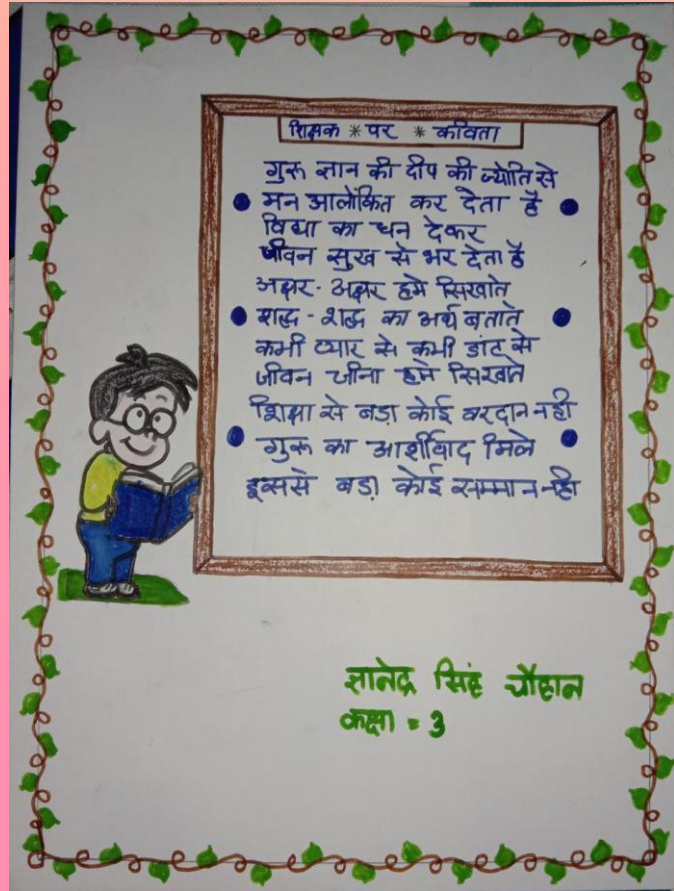 शिक्षक * पर * कविता
गुरू ज्ञान की दीप की ज्योति से
मन आलोकित कर देता है
विद्या का धन देकर
जीवन सुख से भर देता है
अक्षर - अक्षर हमे सिखाते
शब्द - शब्द का अर्थ बताते
कभी प्यार से कभी डांट से
जीवन जीना हमे सिखाते
शिक्षा से बड़ा कोई वरदान नही
गुरू का आर्शीवाद मिले
इससे बड़ा कोई सम्मान नही
ज्ञानेद्र सिंह चौहान
कक्षा = 3